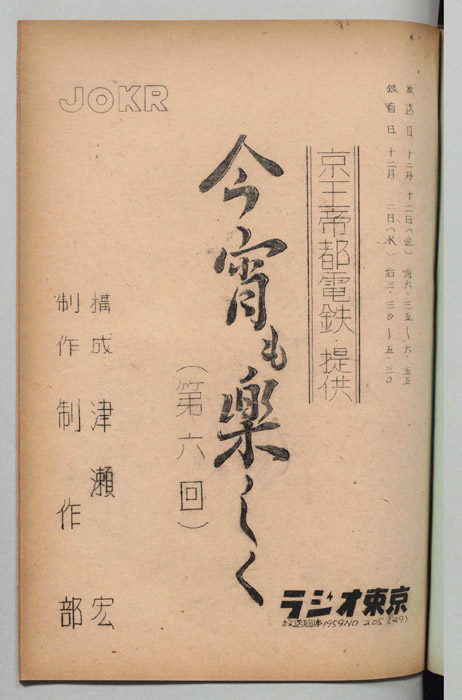 放送日 十二月 十二日(金) 后六・三五〜六・五五
録音日 十二月 三日(水) 后三・三〇〜五・三〇
京王帝都電鉄・提供
今宵も楽しく
(第六回)
構成 津瀬宏
制作 制作部
JOKR
ラジオ東京
放送台本1959NO 205 (29)